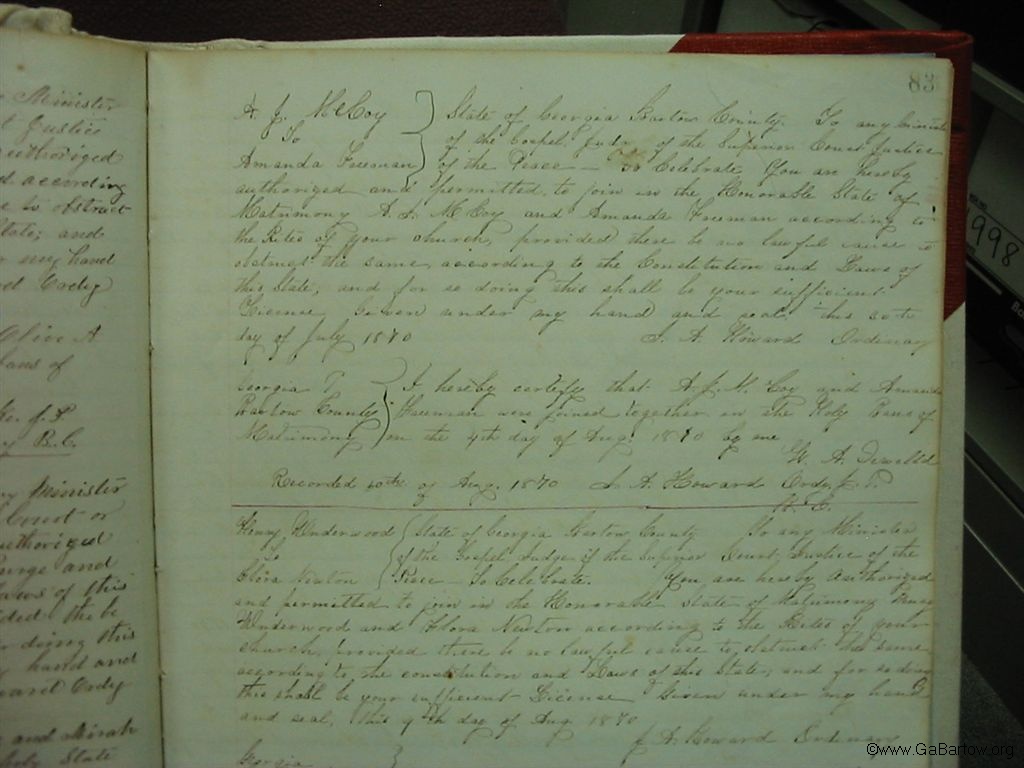 83
A. J. McCoy
To
Amanda Freeman
State of Georgia Bartow County. To any Minister
of the Gospel Judge of the Superior Court Justice
of the Peace — To Celebrate You are hereby
authorized and permitted to join in the Honorable State of
Matrimony A. J. McCoy and Amanda Freeman according to
the Rites of your church, provided there be no lawful cause to
obstruct the same, according to the Constitution and Laws of
this State; and for so doing this shall be your sufficient
License Given under my hand and seal, this
day of July 1870 J. A. Howard Ordinary
Georgia
Bartow County
I hereby certify that A. J. McCoy and Amanda
Freeman were joined together in the Holy Bans of
Matrimony on the 4th day of Aug. 1870 by me
W. A.
Recorded 10th of Aug. 1870 J. A. Howard Ordy
Henry Underwood
To
Flora Newton
State of Georgia Bartow County To any Minister
of the Gospel Judge of the Superior Court, Justice of the
Peace — To Celebrate. You are hereby authorized
and permitted to join in the Honorable state of Matrimony Henry
Underwood and Flora Newton according to the Rites of your
church, provided there be no lawful cause to obstruct the same
according to the constitution and Laws of this State; and for so doing
this shall be your sufficient License Given under my hand
and seal, this 9th day of Aug. 1870
J. A. Howard Ordinary
Georgia
Minister
Justice
authorized
according
to obstruct
State; and
my hand
Ordy
Olive A
Bans of
J. P.
B. C.
Minister
Court or
authorized
and
Laws of this
the be
doing this
hand and
Ordy
and
State
1998
©www.GaBartow.org